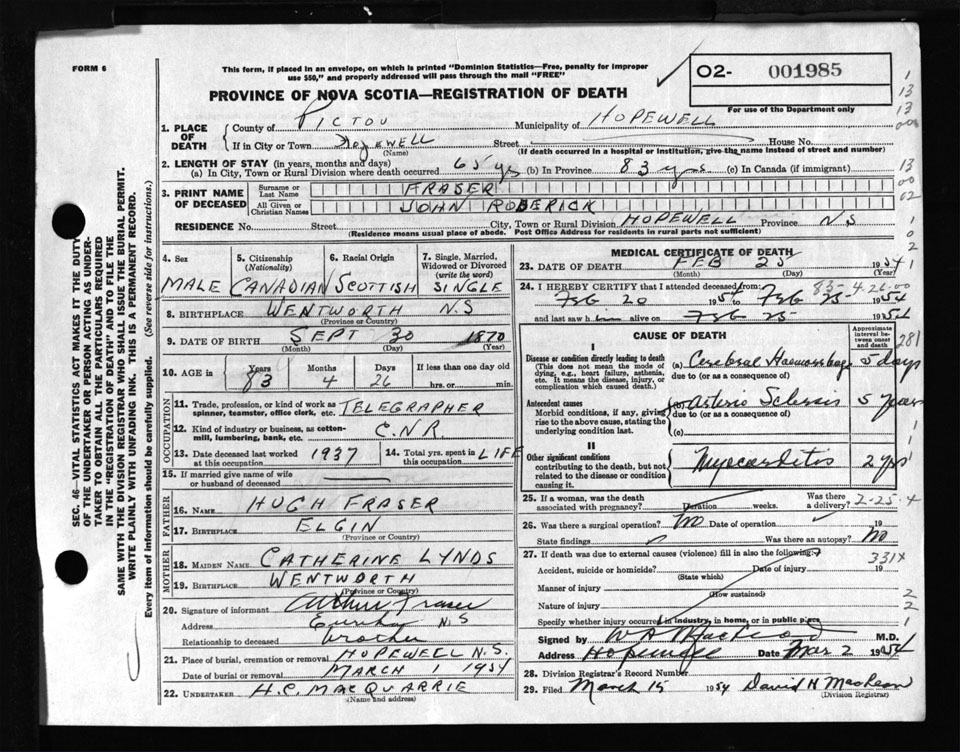 FORM 6
This form, if placed in an envelope, on which is printed "Dominion Statistics—Free, penalty for improper
use $50," and properly addressed will pass through the mail "FREE"
O2- 001985
For use of the Department only
PROVINCE OF NOVA SCOTIA—REGISTRATION OF DEATH
1. PLACE OF DEATH
County of PICTOU Municipality of HOPEWELL
If in City or Town HOPEWELL Street House No.
(Name) (If death occurred in a hospital or institution, give the name instead of street and number)
2. LENGTH OF STAY (in years, months and days)
(a) In City, Town or Rural Division where death occurred 65 yrs (b) In Province 83 yrs (c) In Canada (if immigrant)
3. PRINT NAME OF DECEASED
Surname or Last Name FRASER
All Given or Christian Names JOHN RODERICK
RESIDENCE No. Street City, Town or Rural Division HOPEWELL Province N.S
(Residence means usual place of abode. Post Office Address for residents in rural parts not sufficient)
4. Sex MALE
5. Citizenship (Nationality) CANADIAN
6. Racial Origin SCOTTISH
7. Single, Married, Widowed or Divorced (write the word) SINGLE
8. BIRTHPLACE WENTWORTH N.S
(Province or Country)
9. DATE OF BIRTH SEPT 30 1870
(Month) (Day) (Year)
10. AGE in Years 83 Months 4 Days 26 If less than one day hrs. or min.
OCCUPATION
11. Trade, profession, or kind of work as spinner, teamster, office clerk, etc. TELEGRAPHER
12. Kind of industry or business, as cotton-mill, lumbering, bank, etc. C.N.R.
13. Date deceased last worked at this occupation 1937
14. Total yrs. spent in this occupation LIFE
15. If married give name of wife or husband of deceased
FATHER
16. NAME HUGH FRASER
17. BIRTHPLACE ELGIN
(Province or Country)
MOTHER
18. MAIDEN NAME CATHERINE LYNDS
19. BIRTHPLACE WENTWORTH
(Province or Country)
20. Signature of informant Arthur Fraser
Address Eureka N S
Relationship to deceased brother
21. Place of burial, cremation or removal HOPEWELL N.S.
Date of burial or removal MARCH 1 1954
22. UNDERTAKER H.C. MACQUARRIE
(Name and address)
MEDICAL CERTIFICATE OF DEATH
23. DATE OF DEATH FEB 25 1954
(Month) (Day) (Year)
83-4-26-00
24. I HEREBY CERTIFY that I attended deceased from
Feb 20 1954 to Feb 25 1954
and last saw him alive on Feb 25 1954
CAUSE OF DEATH
Approximate interval between onset and death
I
Disease or condition directly leading to death
(This does not mean the mode of dying, e.g., heart failure, asthenia, etc. It means the disease, injury, or complication which caused death.)
(a) Cerebral Haemorrhage 5 days
due to (or as a consequence of)
Antecedent causes
Morbid conditions, if any, giving rise to the above cause, stating the underlying condition last.
(b) Arterio Sclerosis 5 years
due to (or as a consequence of)
(c)
II
Other significant conditions
contributing to the death, but not related to the disease or condition causing it
Myocarditis 2 yrs
25. If a woman, was the death associated with pregnancy? Duration weeks. Was there a delivery?
2-25-4
26. Was there a surgical operation? No Date of operation 19
State findings Was there an autopsy? No
27. If death was due to external causes (violence) fill in also the following:
331X
Accident, suicide or homicide? Date of injury 19
(State which)
Manner of injury
(How sustained)
Nature of injury
Specify whether injury occurred in industry, in home, or in public place
Signed by W A MacLeod M.D.
Address Hopewell Date Mar 2 1954
28. Division Registrar's Record Number
29. Filed March 15 1954 David H MacLean
(Division Registrar)
SEC. 46—VITAL STATISTICS ACT MAKES IT THE DUTY
OF THE UNDERTAKER OR PERSON ACTING AS UNDER-
TAKER TO OBTAIN ALL THE PARTICULARS REQUIRED
IN THE "REGISTRATION OF DEATH" AND TO FILE THE
SAME WITH THE DIVISION REGISTRAR WHO SHALL ISSUE THE BURIAL PERMIT.
WRITE PLAINLY WITH UNFADING INK. THIS IS A PERMANENT RECORD.
Every item of information should be carefully supplied. (See reverse side for instructions.)
1
13
13
13
00
02
1
0
2
281
1
1
2
2
1